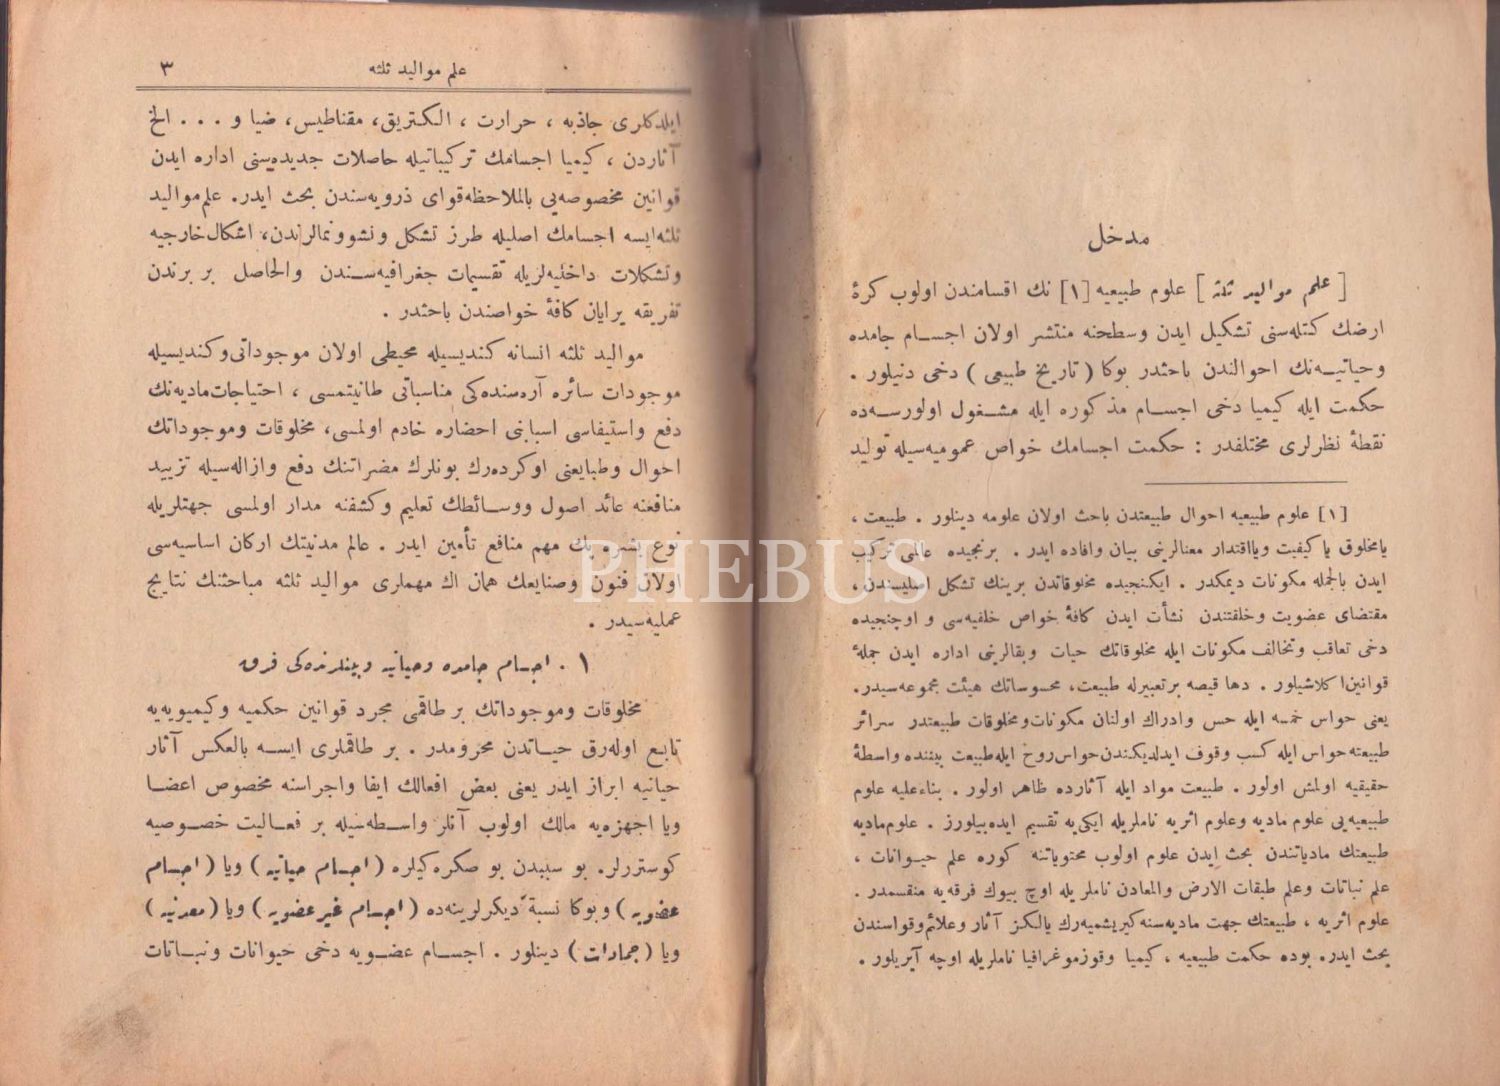 مدخل
[ علم مواليد ثلثه ] علوم طبيعيه [١] نك اقسامندن اولوب كرهٔ
ارضك كتله‌سنى تشكيل ايدن وسطحنه منتشر اولان اجسام جامده
وحياتيه‌نك احوالندن باحثدر بوكا ( تاريخ طبيعى ) دخى دنيلور .
حكمت ايله كيميا دخى اجسام مذكوره ايله مشغول اولورسه‌ده
نقطهٔ نظرلرى مختلفدر : حكمت اجسامك خواص عموميه‌سيله توليد
[١] علوم طبيعيه احوال طبيعتدن باحث اولان علومه دينلور . طبيعت ،
يامخلوق ياكيفيت ويااقتدار معنالرينى بيان وافاده ايدر . برنجيده عالمى تركيب
ايدن بالجمله مكونات ديمكدر . ايكنجيده مخلوقاتدن برينك تشكل اصليسندن،
مقتضاى عضويت وخلقتندن نشأت ايدن كافهٔ خواص خلقيه‌سى و اوچنجيده
دخى تعاقب وتخالف مكونات ايله مخلوقاتك حيات وبقالرينى اداره ايدن جملهٔ
قوانين اكلاشيلور . دها قيصه برتعبيرله طبيعت، محسوساتك هيئت مجموعه‌سيدر.
يعنى حواس خمسه ايله حس وادراك اولنان مكونات ومخلوقات طبيعتدر سرائر
طبيعته حواس ايله كسب وقوف ايدلديكندن حواس روح ايله طبيعت بيننده واسطهٔ
حقيقيه اولمش اولور . طبيعت مواد ايله آثارده ظاهر اولور . بناءعليه علوم
طبيعيه‌يى علوم ماديه وعلوم اثريه ناملريله ايكى‌يه تقسيم ايده‌بيلورز . علوم ماديه
طبيعتك مادياتندن بحث ايدن علوم اولوب محتوياتنه كوره علم حيوانات ،
علم نباتات وعلم طبقات الارض والمعادن ناملريله اوچ بيوك فرقه‌يه منقسمدر .
علوم اثريه ، طبيعتك جهت ماديه‌سنه كيريشميه‌رك يالكز آثار وعلائم وقواسندن
بحث ايدر. بوده حكمت طبيعيه ، كيميا وقوزموغرافيا ناملريله اوچه آيريلور .
علم مواليد ثلثه ٣
ايلدكلرى جاذبه ، حرارت ، الكتريق، مقناطيس، ضيا و . . . الخ
آثاردن ، كيميا اجسامك تركيباتيله حاصلات جديده‌سنى اداره ايدن
قوانين مخصوصه‌يى بالملاحظه قواى ذرويه‌سندن بحث ايدر. علم مواليد
ثلثه ايسه اجسامك اصليله طرز تشكل ونشوونمالرندن، اشكال خارجيه
وتشكلات داخليه‌لريله تقسيمات جغرافيه‌سندن والحاصل بربرندن
تفريقه يرايان كافهٔ خواصندن باحثدر .
مواليد ثلثه انسانه كنديسيله محيطى اولان موجوداتى وكنديسيله
موجودات سائره آره‌سنده‌كى مناسباتى طانيتمسى ، احتياجات ماديه‌نك
دفع واستيفاسى اسبابنى احضاره خادم اولمسى، مخلوقات وموجوداتك
احوال وطبايعنى اوكرده‌رك بونلرك مضراتنك دفع وازاله‌سيله تزييد
منافعنه عائد اصول ووسائطك تعليم وكشفنه مدار اولمسى جهتلريله
نوع بشره پك مهم منافع تأمين ايدر . عالم مدنيتك اركان اساسيه‌سى
اولان فنون وصنايعك همان اك مهملرى مواليد ثلثه مباحثنك نتايج
عمليه‌سيدر .
١ . اجسام جامده وحياتيه وبيننده‌كى فرق
مخلوقات وموجوداتك برطاقمى مجرد قوانين حكميه وكيميويه‌يه
تابع اوله‌رق حياتدن محرومدر . بر طاقملرى ايسه بالعكس آثار
حياتيه ابراز ايدر يعنى بعض افعالك ايفا واجراسنه مخصوص اعضا
ويا اجهزه‌يه مالك اولوب آنلر واسطه‌سيله بر فعاليت خصوصيه
كوستررلر. بو سببدن بو صكره‌كيلره ( اجسام حياتيه ) ويا ( اجسام
عضويه ) وبوكا نسبةً ديكرلرينه‌ده ( اجسام غيرعضويه ) ويا ( معدنيه )
ويا ( جمادات ) دينلور . اجسام عضويه دخى حيوانات ونباتات
PHEBUS